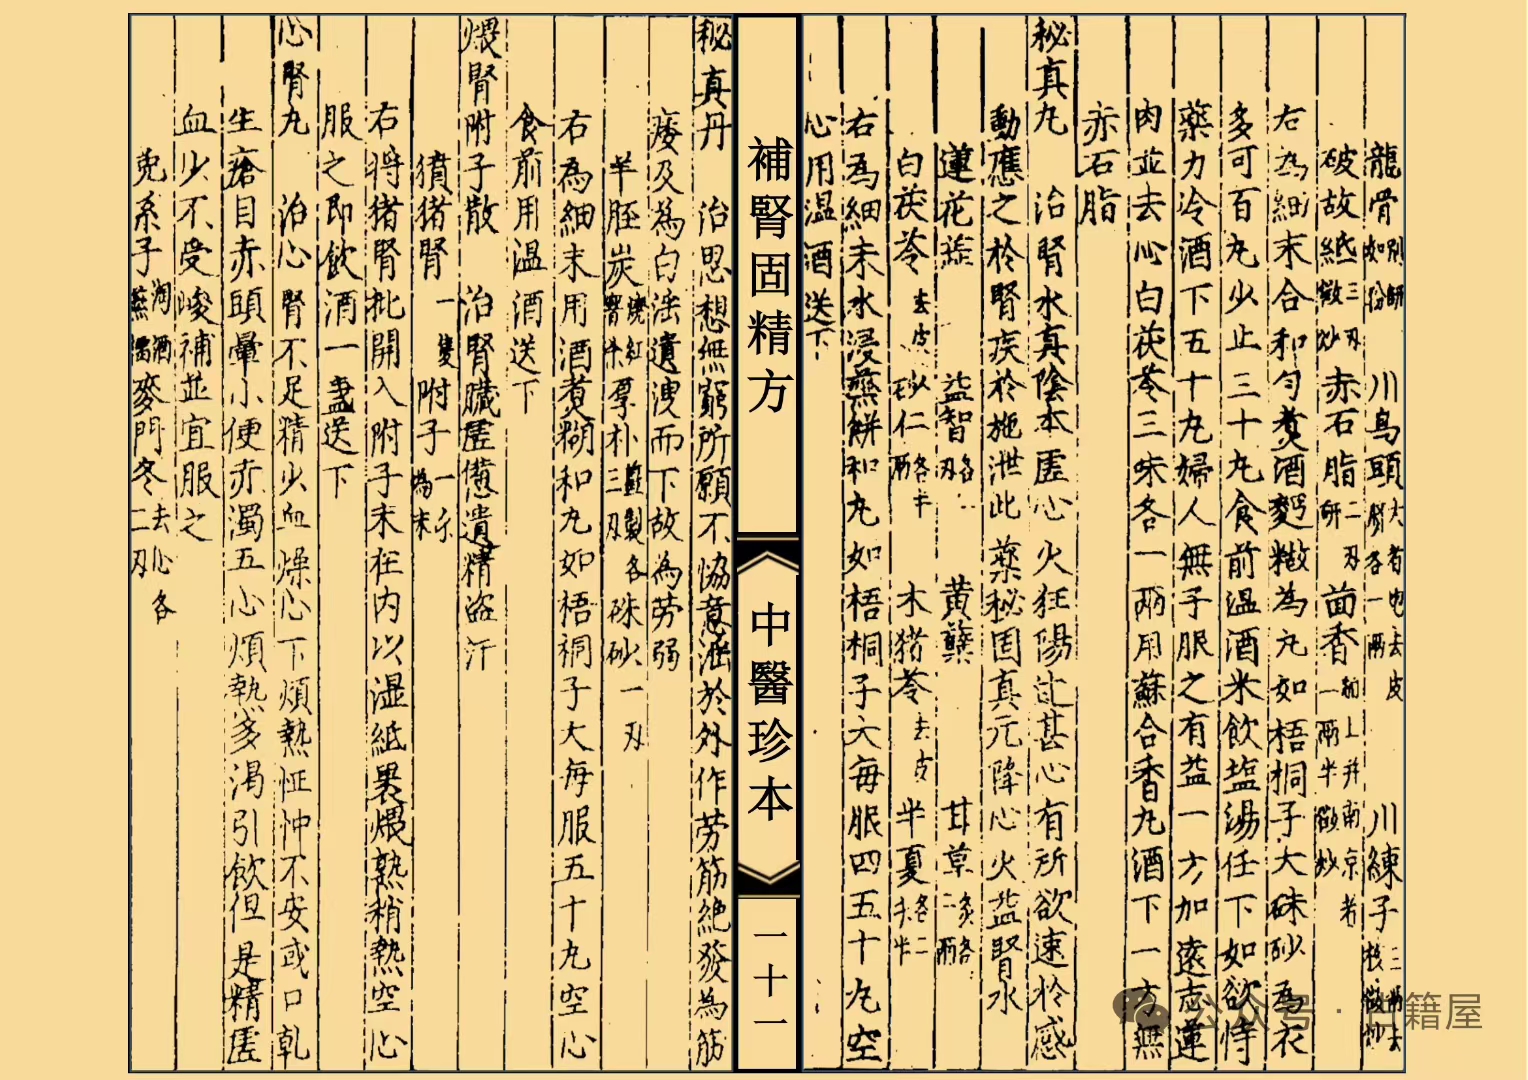 龍骨 別研如粉 川烏頭 大者也去皮臍各一兩 川練子 三兩去核微炒
破故紙 三刄微炒 赤石脂 二刄研 茴香 一兩半微炒
右為細末合和勻煑酒麪糊為丸如梧桐子大硃砂為衣
多可百丸少止三十丸食前温酒米飲塩湯任下如欲恃
藥力冷酒下五十丸婦人無子服之有益一方加遠志蓮
肉並去心白茯苓三味各一兩用蘇合香丸酒下一方無
赤石脂
秘真丸 治腎水真陰本虛心火狂陽过甚心有所欲速於感
動應之於腎疾於施泄此藥秘固真元降心火益腎水
蓮花蕋 益智 各刄 黃蘗 甘草 炙各二兩
白茯苓 去皮 砂仁 各半兩 木猪苓 去皮 半夏 各二
右為細末水浸蒸餅和丸如梧桐子大每服四五十丸空
心用温酒送下
補腎固精方
中醫珍本
一十一
秘真丹 治思想無窮所願不恊意滛於外作劳筋絶發為筋
痿及為白滛遺洩而下故為劳弱
羊脛炭 燒紅窨殺 厚朴 薑製各三刄 硃砂 一刄
右為細末用酒煑糊和丸如梧桐子大每服五十丸空心
食前用温酒送下
煨腎附子散 治腎臟虛憊遺精盗汗
獖猪腎 一隻 附子 一个為末
右將猪腎批開入附子末在内以湿紙裏煨熟稍熱空心
服之即飲酒一盞送下
心腎丸 治心腎不足精少血燥心下煩熱怔忡不安或口乾
生瘡目赤頭暈小便赤濁五心煩熱多渴引飲但是精虛
血少不受峻補並宜服之
莬系子 淘酒蒸擂 麥門冬 去心各二刄
公众号·古籍屋